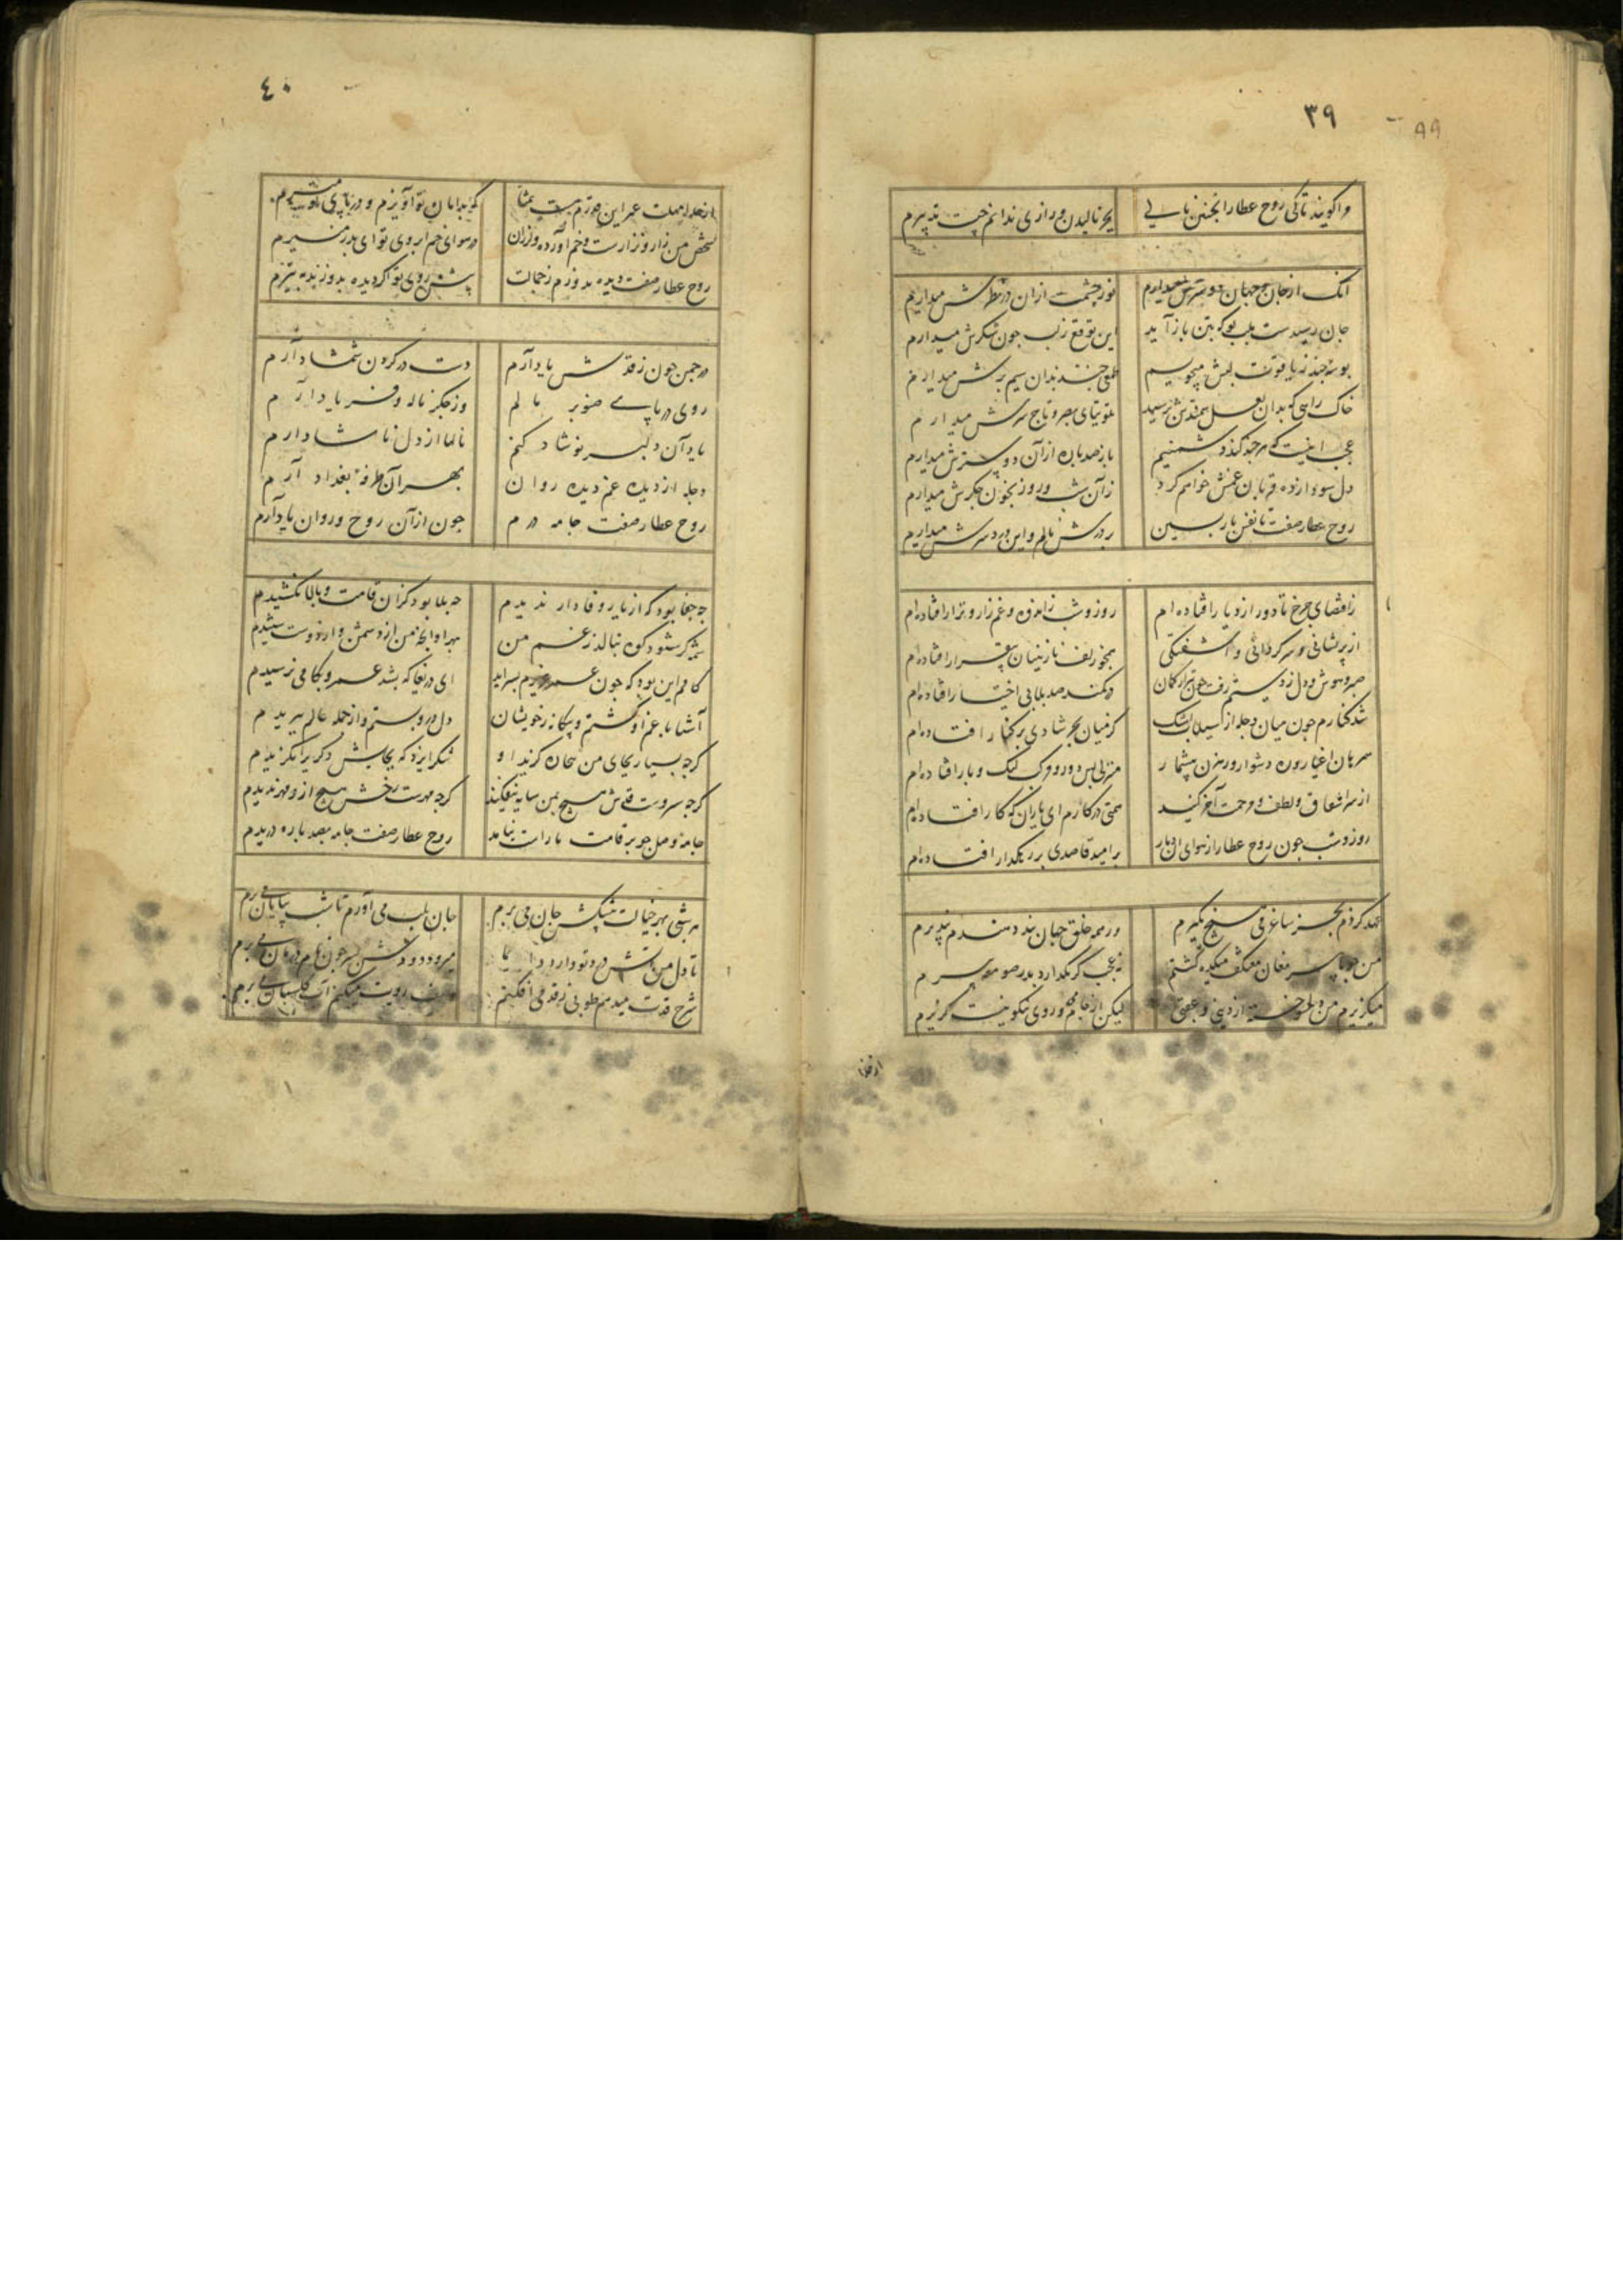 ۳۹
مرا گویند تا کی روح عطارا چنین نالی
بجز نالیدن و زاری ندانم چیست تدبیرم
آنک از جان و جهان دوسترش میدارم
نور چشمست ازان در نظرش میدارم
جان رسیدست بلب بو که بتن باز آید
این توقع زلب چون شکرش میدارم
بوسهٔ چند ز یاقوت لبش میجویم
طمعی چند بدان سیم برش میدارم
خاک راهی که بدان نعل سمندش برسید
توتیای بصر و تاج سرش میدارم
عجب اینست که هر چند کند دشمنیم
باز صد باره ازان دوسترش میدارم
دل سودا زده قربان غمش خواهم کرد
زآن شب و روز بخون جگرش میدارم
روح عطار صفت تا نفس بازپسین
بر درش نالم و این درد سرش میدارم
زاقتضای چرخ تا دور از دیار افتاده‌ام
روز و شب زاندوه و غم زار و نزار افتاده‌ام
از پریشانی و سرگردانی و آشفتگی
همچو زلف نازنینان بیقرار افتاده‌ام
صبر و هوش و دل ز دستم رفت چون تیر از کمان
در کمند صد بلا بی اختیار افتاده‌ام
شد کنارم چون میان دجله از سیلاب اشک
کز میان بحر شادی بر کنار افتاده‌ام
همرهان اغیار و ره دشوار و رهزن بیشمار
منزلی بس دور و مرکب لنگ و بار افتاده‌ام
از سر اشفاق و لطف و مرحمت آخر کنید
همتی در کارم ای یاران که کار افتاده‌ام
روز و شب چون روح عطار از هوای آن بهار
بر امید قاصدی بر رهگذار افتاده‌ام
عهد کردم بجز ساغر می هیچ نگیرم
ور همه خلق جهان پند دهندم نپذیرم
من چو با پیر مغان معتکف میکده گشتم
نه عجب گر نگذارد بدر صومعه پیرم
میگریزم من دلسوخته از دینی و عقبی
لیکن از جام می و روی نکو نیست گزیرم
۴۰
که بدامان تو آویزم و در پای تو میرم
شخص من زار و نزارست و خم آورده و زان
در هوای خم ابروی تو ای بدر منیرم
روح عطار صفت دیده بدوزم ز خجالت
پیش روی تو اگر دیده بدوزند به تیرم
در چمن چون ز قدش یاد آرم
دست در گردن شمشاد آرم
روی در پای صنوبر مالم
وز جگر ناله و فریاد آرم
یاد آن دلبر نوشاد کنم
نالها از دل ناشاد آرم
دجله از دیده غم دیده روان
بهر آن طرفهٔ بغداد آرم
روح عطار صفت جامه درم
چون از آن روح و روان یاد آرم
چه جفا بود که از یار وفادار ندیدم
چه بلا بود کزان قامت و بالا نکشیدم
کامم این بود که چون عمر عزیزم بسر آید
ای دریغا که بشد عمر و بکامی نرسیدم
آشنا با غم او گشتم و بیگانه ز خویشان
دل درو بستم و از جمله عالم ببریدم
گرچه بسیار بجای من سخان گزید او
شکر ایزد که بجایش دگری را نگزیدم
گرچه سروست قدش هیچ بمن سایه نیفکند
گرچه مهرست رخش هیچ ازو مهر ندیدم
جامه وصل چو بر قامت ما راست نیامد
روح عطار صفت جامه بصد پاره دریدم
هر شبی بهر خیالت پیشکش جان می برم
جان بلب می آورم تا شب بپایان می برم
شرح قدت میدهم طوبی ز قد می افکنم
وصف رویت میکنم آب گلستان می برم